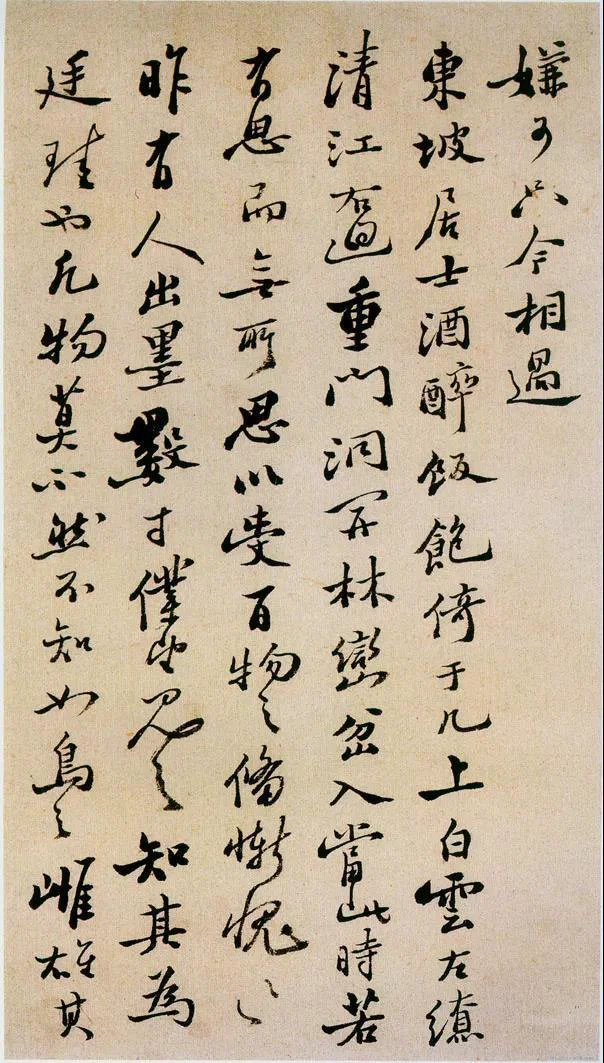 嫌可只今相過
東坡居士酒醉飯飽倚于几上白雲左繚
清江右迴重門洞開林巒岔入當此時若
有思而無所思以受百物之備慚愧〻
昨有人出墨數寸僕望見之知其為
廷珪也凡物莫不然不知如烏之雌雄其